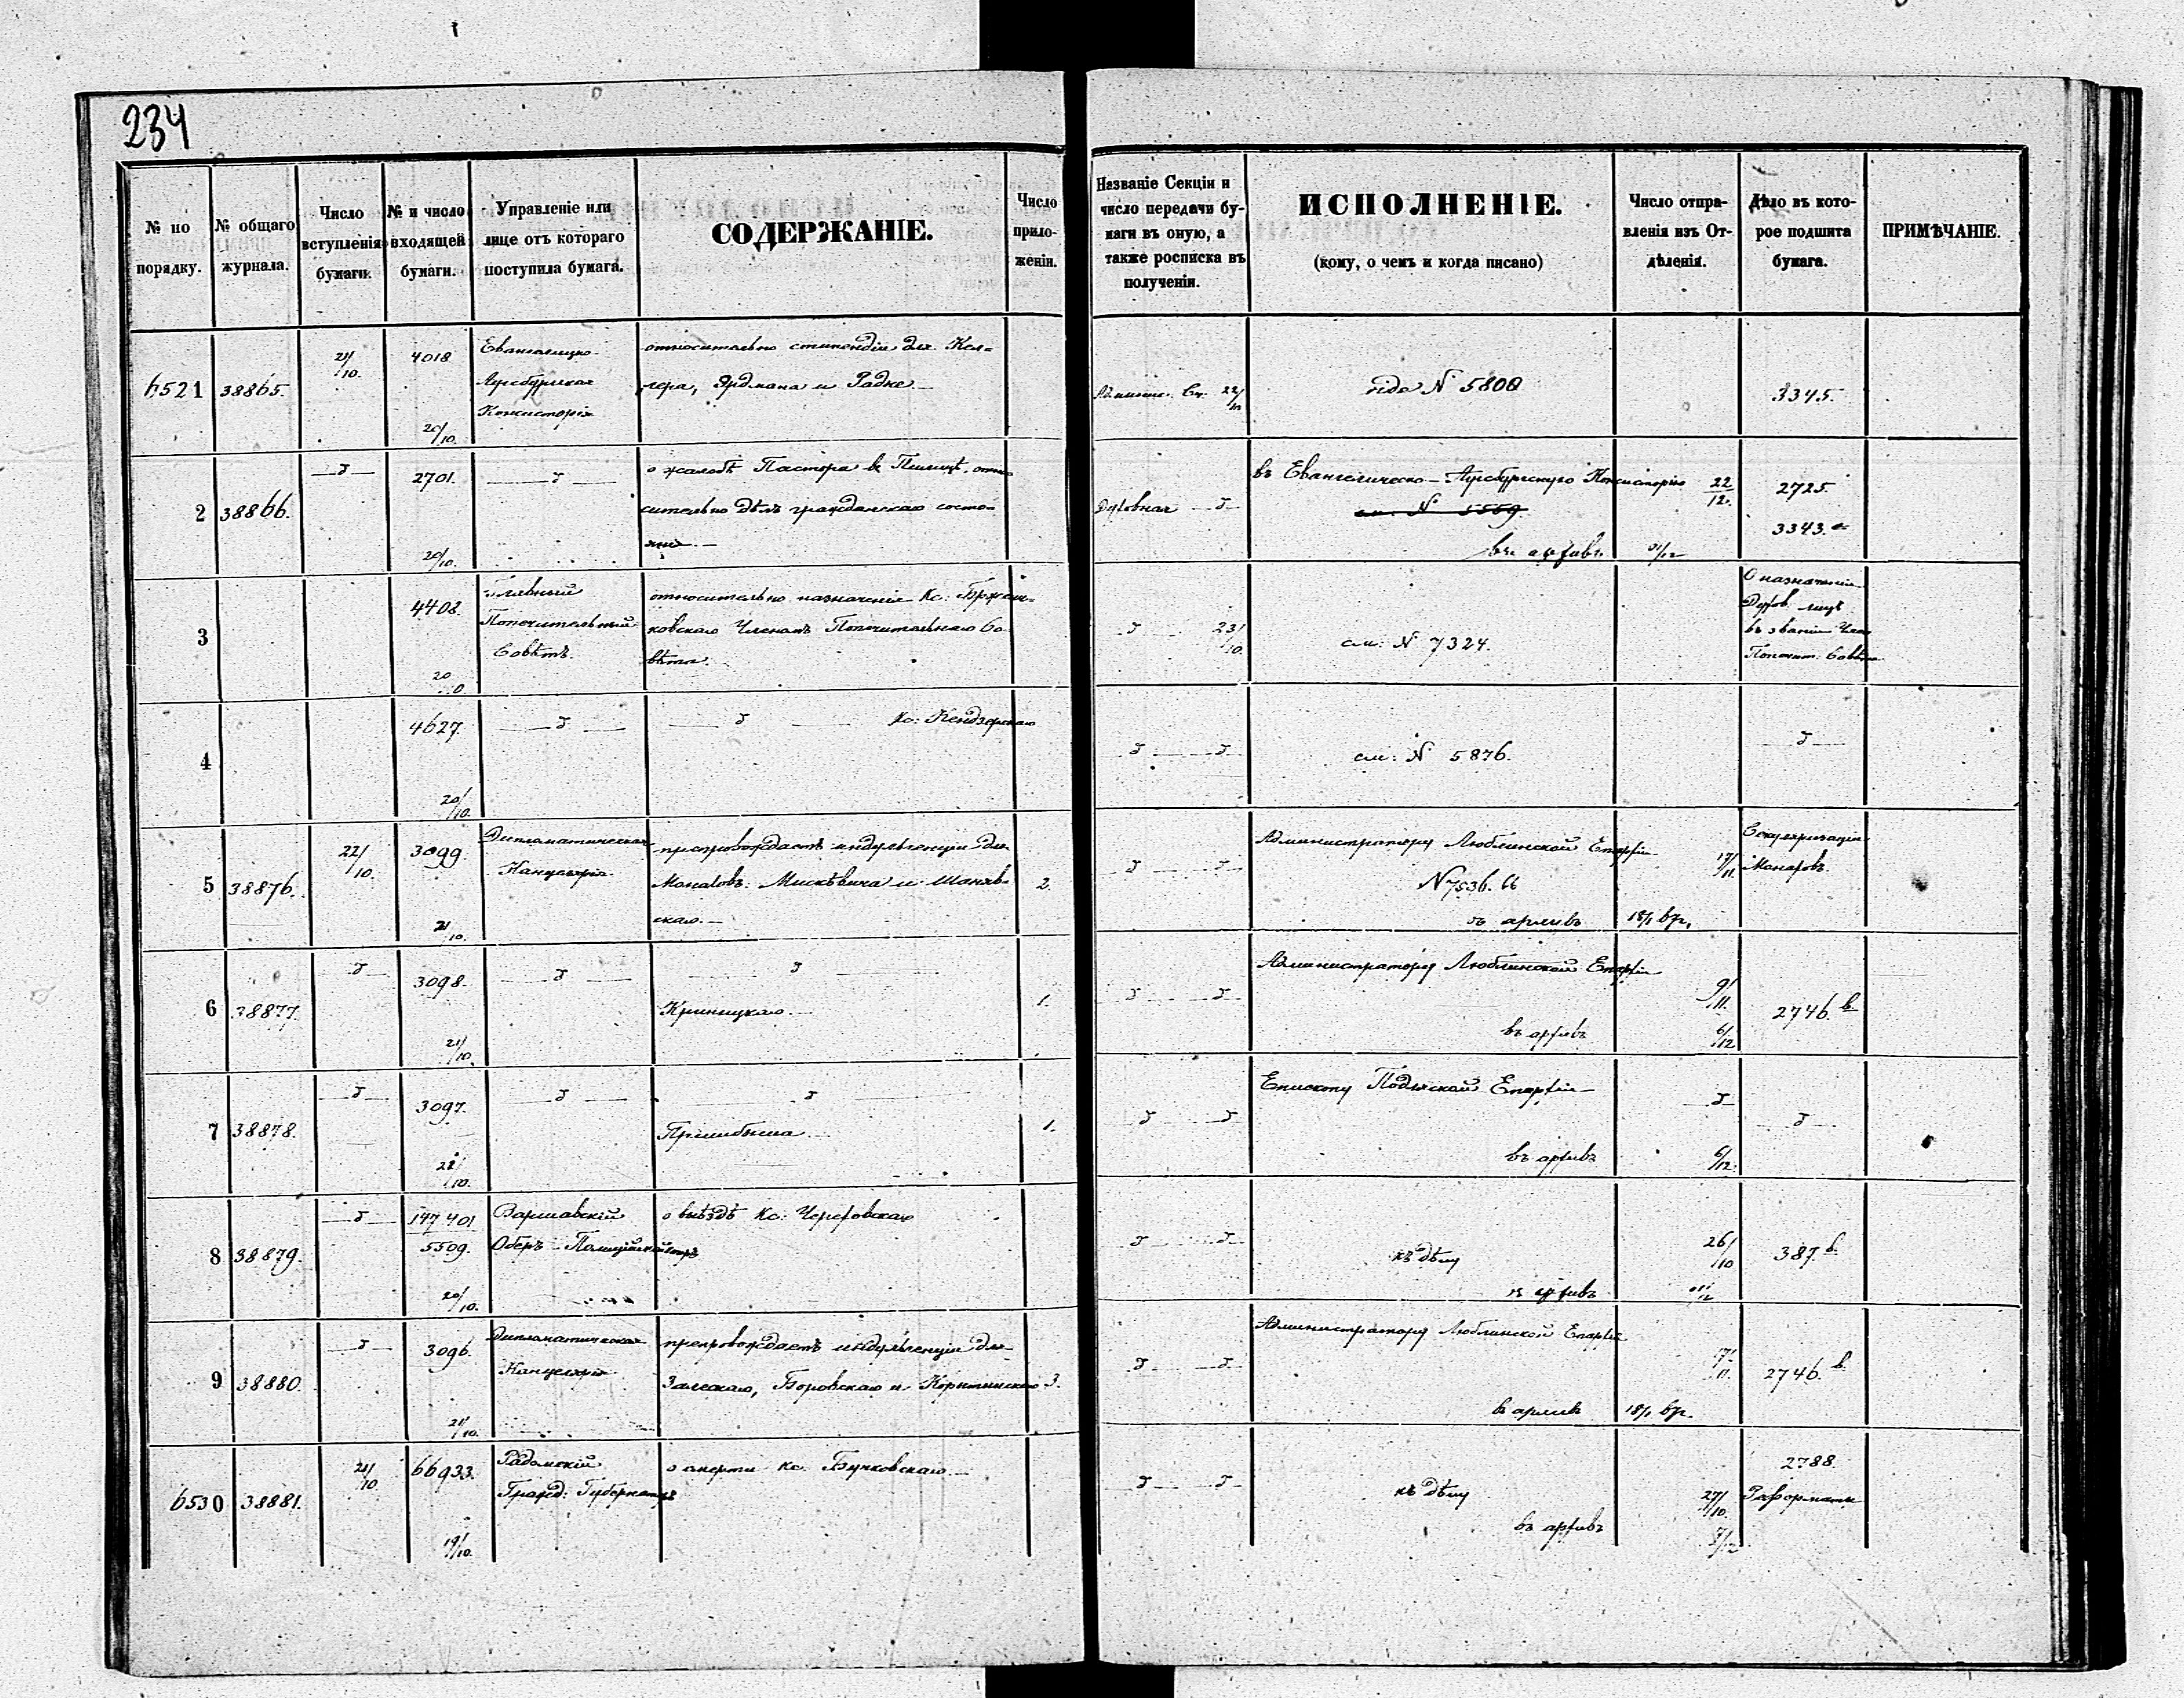 234
№ по порядку.
№ общаго журнала.
Число вступленія бумаги.
№ и число входящей бумаги.
Управленіе или лице отъ котораго поступила бумага.
СОДЕРЖАНІЕ.
Число приложеніи.
Названіе Секціи и число передачи бумаги въ оную, а также росписка въ полученіи.
ИСПОЛНЕНІЕ.
(кому, о чемъ и когда писано)
Число отправленія изъ Отдѣленія.
Дѣло въ которое подшита бумага.
ПРИМѢЧАНІЕ.
6521 38865. 21/10. 4018 Евангелицко-
относительно стипендіи для Кел=
Аугсбургская
лера, Ярдмана и Радке.—
Консисторія
20/10.
22/10
vide N 5800
3345.
2 38866. 2701.
о жалобѣ Пастора въ
сительно дѣлъ гражданскаго состо=
янія.—
20/10.
Духовная
въ Евангелическо-Аугсбургскую Консисторію 22/12.
2725.
3343.
въ архивъ
3 4408. Главный
Попечительный
Совѣтъ.
относительно назначенія Кс.
ковскаго Членомъ Попечительнаго Со
вѣта.
23/10.
см: N 7324.
О назначеніи
Духов. лицъ
въ званіи
Попечит. Совѣта
4 4627.
Кс: Кендзерскаго
20/10.
см: N 5876.
5 38876. 22/10. 3099. Дипломатическая
Канцелярія
препровождаетъ индульгенціи для
Монаховъ: Мискѣвича и
скаго.—
2.
21/10.
Администратору Люблинской Епархіи
N 7536. 66
въ архивъ
Секуляризаціи
Монаховъ
6 38877. 3098.
Криницкаго.
1.
21/10.
Администратору Люблинской Епархіи
9/11.
въ архивъ 6/12
2746. в.
7 38878. 3097.
1.
Епископу Подляской Епархіи—
въ архивъ 6/12.
8 38879. 147401
5509.
20/10.
Варшавскій
Оберъ-Полиціймейстеръ
о выѣздѣ Кс:
къ дѣлу
26/10
387.
въ архивъ
9 38880. 3096. Дипломатическая
Канцелярія
препровождаетъ индульгенціи для
Залескаго, Боровскаго и
3.
21/10.
Администратору Люблинской Епархіи
въ архивъ
2746. в.
6530 38881. 21/10 66933. Радомскій
Гражд: Губернаторъ
о смерти Кс. Бучковскаго.—
19/10.
къ дѣлу
27/10.
въ архивъ
2788.
Реформаты